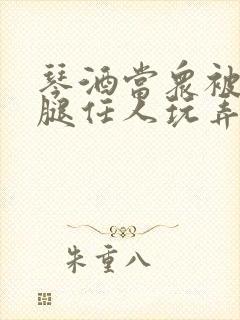 琴酒当众被
腿任人玩弄
朱重八